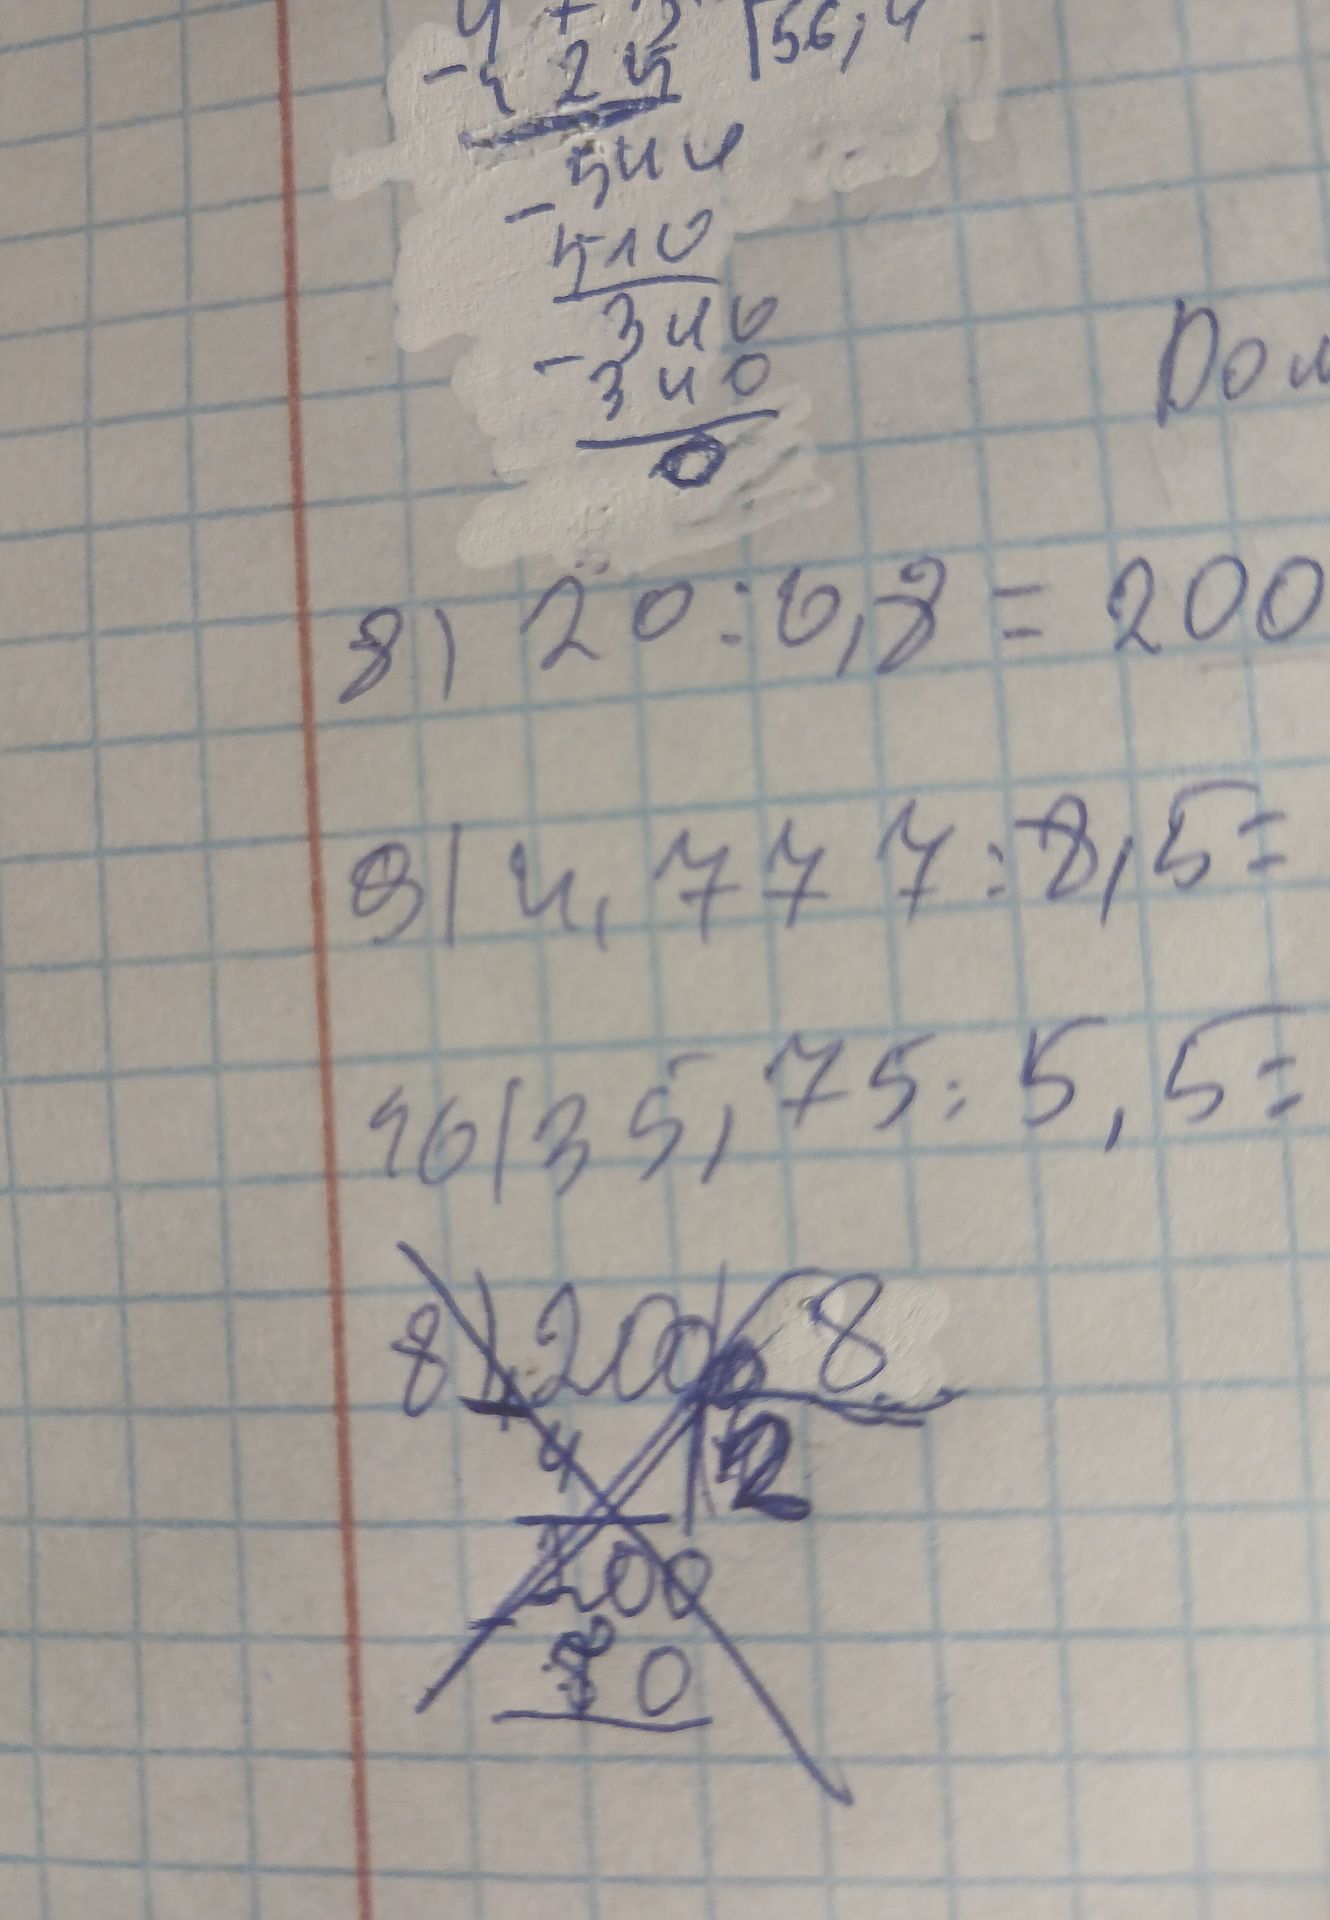 56,4
544
510
340
340
0
Дом
8) 20:0,8=200
9) 4,777:8,5=
10) 35,75:5,5=
8) 200 8
4 2
200
80